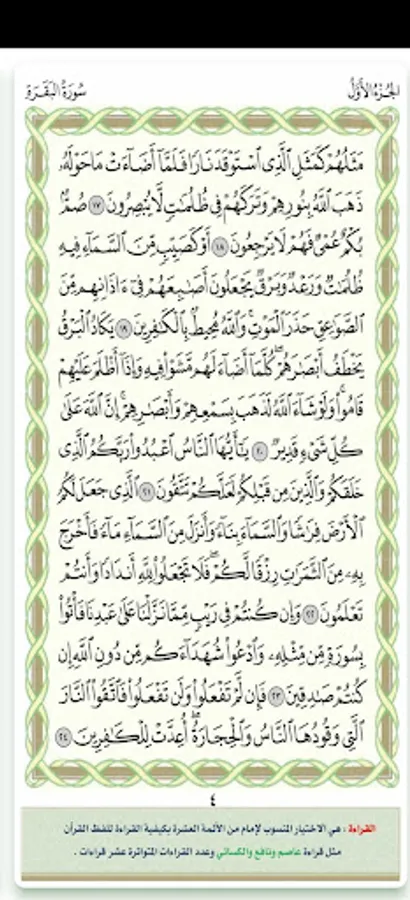 الجزء الأول
سورة البقرة
مَثَلُهُمْ كَمَثَلِ ٱلَّذِى ٱسْتَوْقَدَ نَارًا فَلَمَّآ أَضَآءَتْ مَا حَوْلَهُۥ
ذَهَبَ ٱللَّهُ بِنُورِهِمْ وَتَرَكَهُمْ فِى ظُلُمَـٰتٍ لَّا يُبْصِرُونَ ١٧ صُمٌّۢ
بُكْمٌ عُمْىٌ فَهُمْ لَا يَرْجِعُونَ ١٨ أَوْ كَصَيِّبٍ مِّنَ ٱلسَّمَآءِ فِيهِ
ظُلُمَـٰتٌ وَرَعْدٌ وَبَرْقٌ يَجْعَلُونَ أَصَـٰبِعَهُمْ فِىٓ ءَاذَانِهِم مِّنَ
ٱلصَّوَٰعِقِ حَذَرَ ٱلْمَوْتِ ۚ وَٱللَّهُ مُحِيطٌۢ بِٱلْكَـٰفِرِينَ ١٩ يَكَادُ ٱلْبَرْقُ
يَخْطَفُ أَبْصَـٰرَهُمْ ۖ كُلَّمَآ أَضَآءَ لَهُم مَّشَوْا۟ فِيهِ وَإِذَآ أَظْلَمَ عَلَيْهِمْ
قَامُوا۟ ۚ وَلَوْ شَآءَ ٱللَّهُ لَذَهَبَ بِسَمْعِهِمْ وَأَبْصَـٰرِهِمْ ۚ إِنَّ ٱللَّهَ عَلَىٰ
كُلِّ شَىْءٍ قَدِيرٌ ٢٠ يَـٰٓأَيُّهَا ٱلنَّاسُ ٱعْبُدُوا۟ رَبَّكُمُ ٱلَّذِى
خَلَقَكُمْ وَٱلَّذِينَ مِن قَبْلِكُمْ لَعَلَّكُمْ تَتَّقُونَ ٢١ ٱلَّذِى جَعَلَ لَكُمُ
ٱلْأَرْضَ فِرَٰشًا وَٱلسَّمَآءَ بِنَآءً وَأَنزَلَ مِنَ ٱلسَّمَآءِ مَآءً فَأَخْرَجَ
بِهِۦ مِنَ ٱلثَّمَرَٰتِ رِزْقًا لَّكُمْ ۖ فَلَا تَجْعَلُوا۟ لِلَّهِ أَندَادًا وَأَنتُمْ
تَعْلَمُونَ ٢٢ وَإِن كُنتُمْ فِى رَيْبٍ مِّمَّا نَزَّلْنَا عَلَىٰ عَبْدِنَا فَأْتُوا۟
بِسُورَةٍ مِّن مِّثْلِهِۦ وَٱدْعُوا۟ شُهَدَآءَكُم مِّن دُونِ ٱللَّهِ إِن
كُنتُمْ صَـٰدِقِينَ ٢٣ فَإِن لَّمْ تَفْعَلُوا۟ وَلَن تَفْعَلُوا۟ فَٱتَّقُوا۟ ٱلنَّارَ
ٱلَّتِى وَقُودُهَا ٱلنَّاسُ وَٱلْحِجَارَةُ ۖ أُعِدَّتْ لِلْكَـٰفِرِينَ ٢٤
٤
القراءة : هي الاختيار المنسوب لإمام من الأئمة العشرة بكيفية القراءة للفظ القرآن
مثل قراءة عاصم ونافع والكسائي وعدد القراءات المتواترة عشر قراءات .